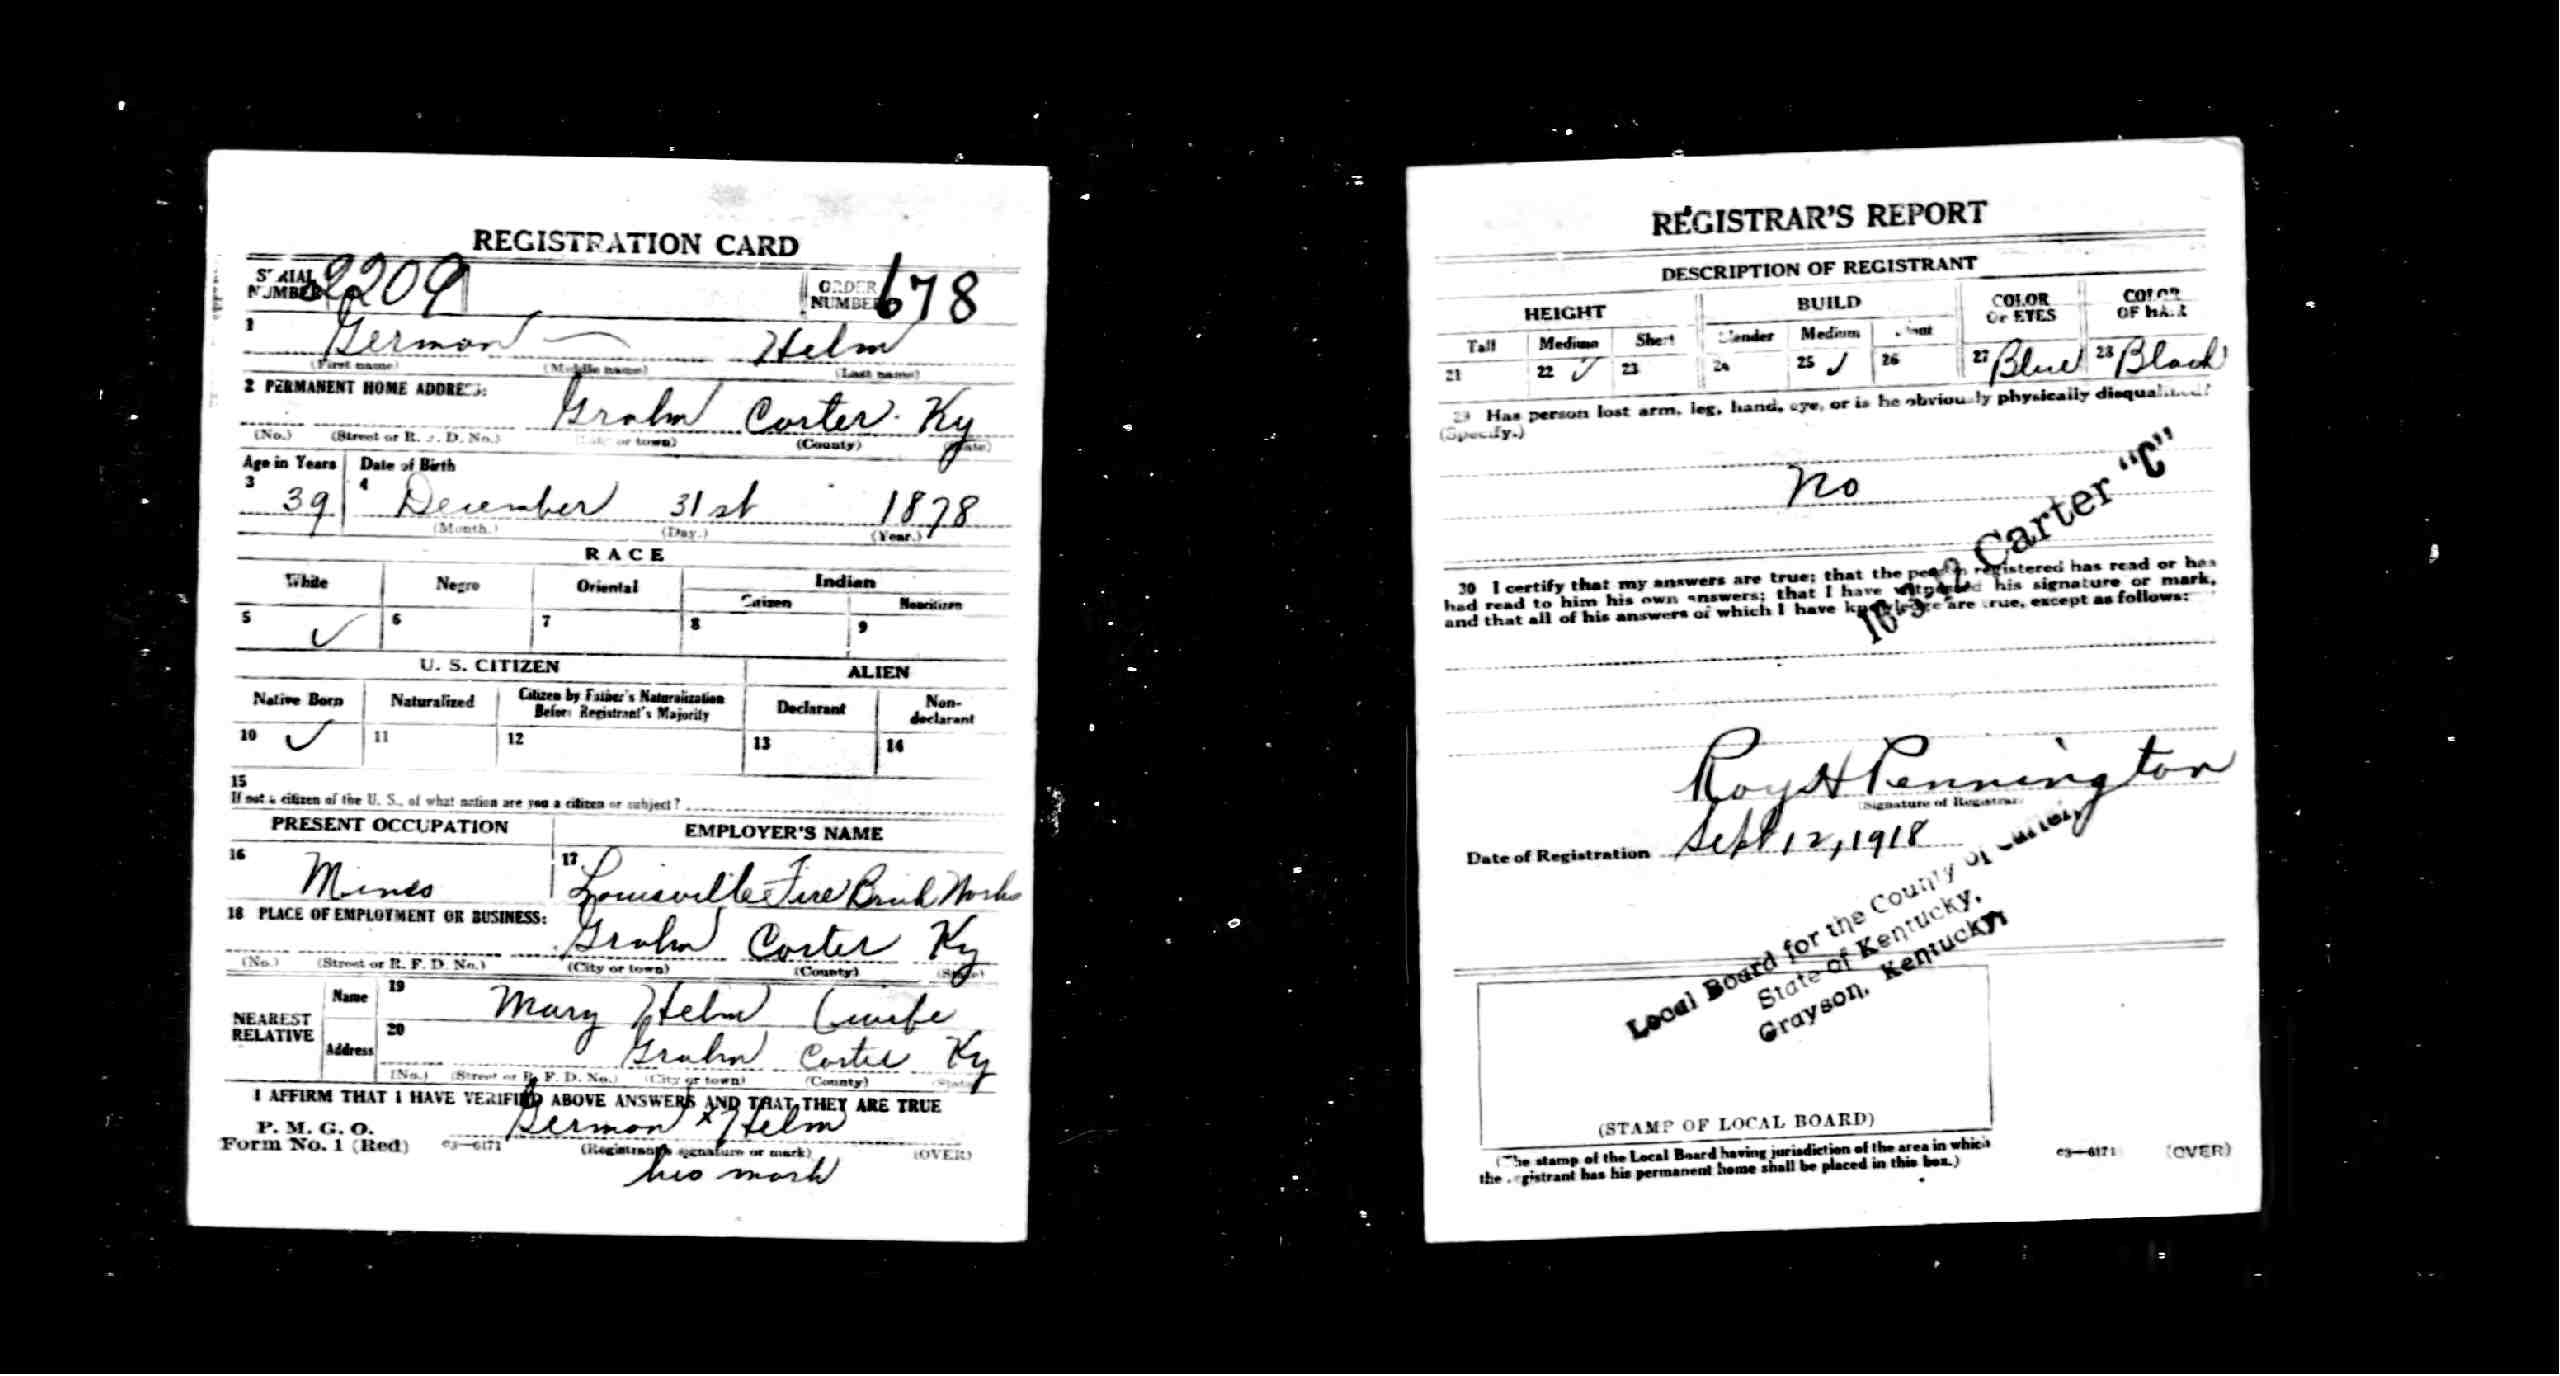 REGISTRATION CARD
SERIAL NUMBER 2209 ORDER NUMBER 678
1 German — Helm
(First name) (Middle name) (Last name)
2 PERMANENT HOME ADDRESS:
Grahn Carter Ky
(No.) (Street or R. F. D. No.) (City or town) (County) (State)
Age in Years Date of Birth
3 39 4 December 31st 1878
(Month.) (Day.) (Year.)
RACE
White Negro Oriental Indian
Citizen Noncitizen
5 ✓ 6 7 8 9
U. S. CITIZEN ALIEN
Native Born Naturalized Citizen by Father's Naturalization Before Registrant's Majority Declarant Non-declarant
10 ✓ 11 12 13 14
15
If not a citizen of the U. S., of what nation are you a citizen or subject?
PRESENT OCCUPATION EMPLOYER'S NAME
16 17 Louisville Fire Brick Works
18 PLACE OF EMPLOYMENT OR BUSINESS:
Grahn Carter Ky
(No.) (Street or R. F. D. No.) (City or town) (County) (State)
NEAREST RELATIVE
Name 19 Mary Helm (wife
Address 20 Grahn Carter Ky
(No.) (Street or R. F. D. No.) (City or town) (County) (State)
I AFFIRM THAT I HAVE VERIFIED ABOVE ANSWERS AND THAT THEY ARE TRUE
P. M. G. O.
Form No. 1 (Red) 03—6171 German x Helm
(Registrant's signature or mark) (OVER)
his mark
REGISTRAR'S REPORT
DESCRIPTION OF REGISTRANT
HEIGHT BUILD COLOR OF EYES COLOR OF HAIR
Tall Medium Short Slender Medium Stout
21 22 ✓ 23 24 25 ✓ 26 27 Blue 28 Black
29 Has person lost arm, leg, hand, eye, or is he obviously physically disqualified?
(Specify.)
No
16-3-12 Carter "C"
30 I certify that my answers are true; that the person registered has read or has
had read to him his own answers; that I have witnessed his signature or mark,
and that all of his answers of which I have knowledge are true, except as follows:
Roy H Pennington
(Signature of Registrar)
Date of Registration Sept 12, 1918
Local Board for the County of Carter,
State of Kentucky,
Grayson, Kentucky,
(STAMP OF LOCAL BOARD)
(The stamp of the Local Board having jurisdiction of the area in which
the registrant has his permanent home shall be placed in this box.)
03—6171 (OVER)